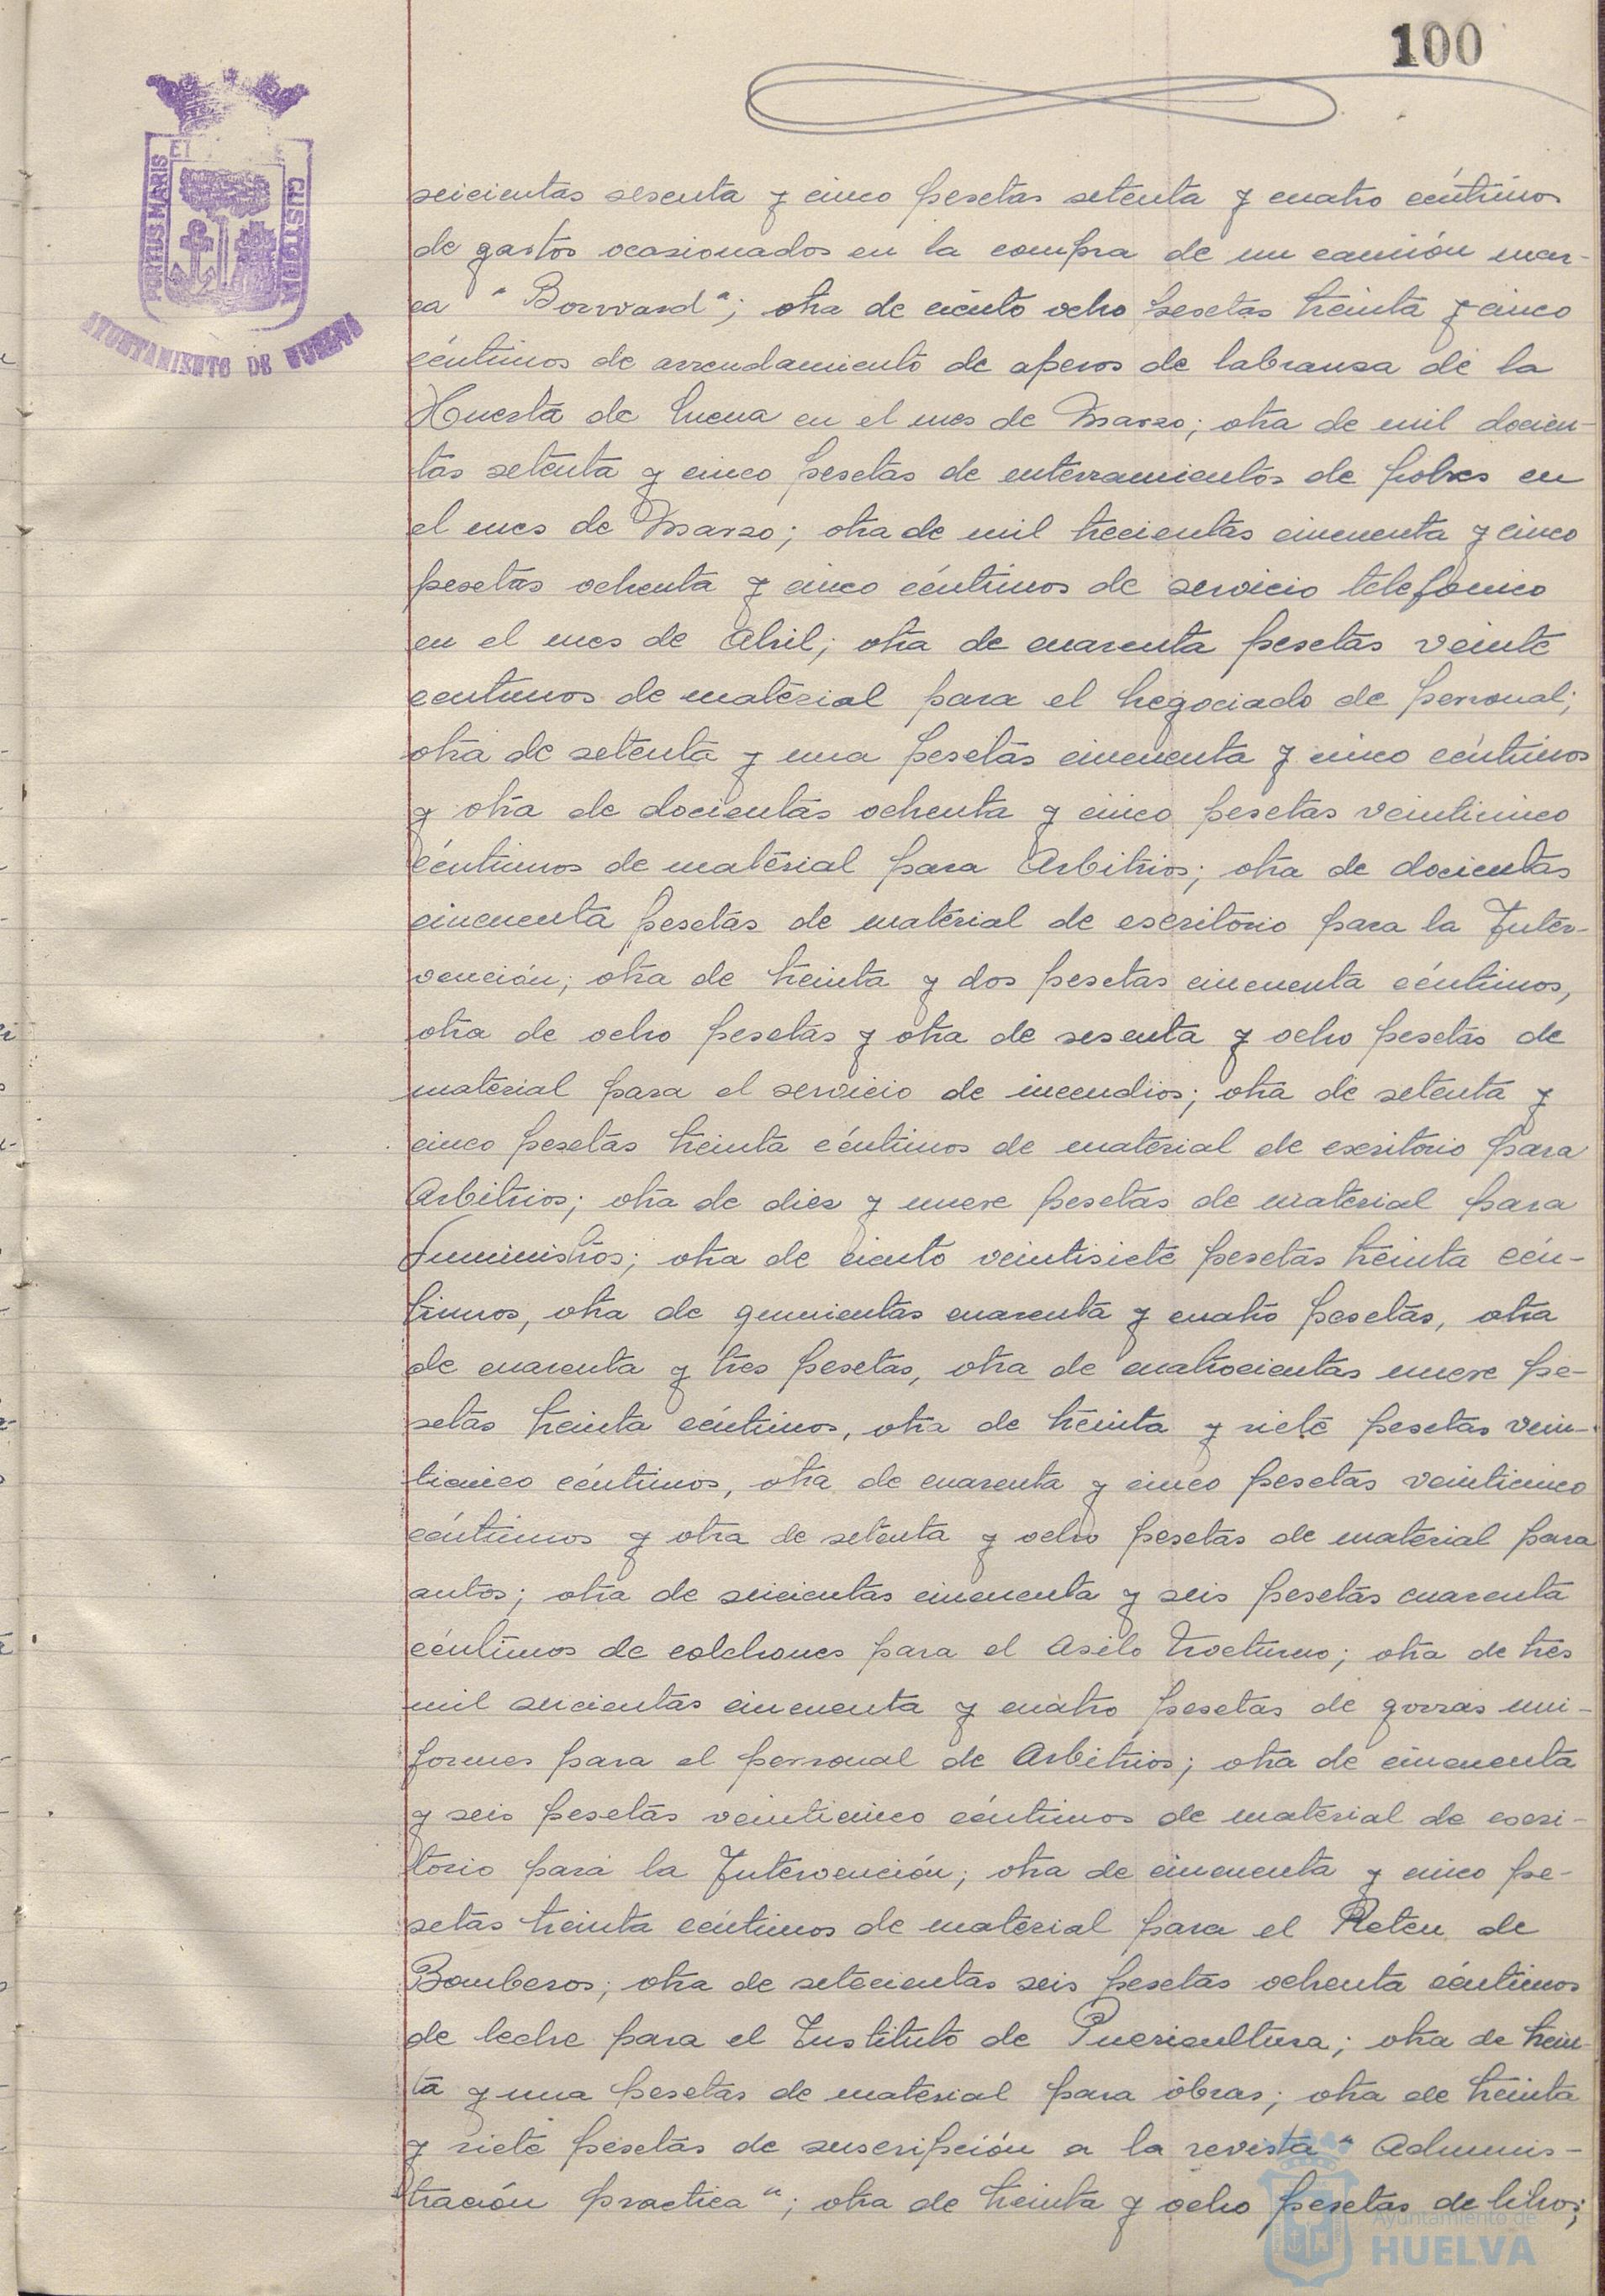 100
PORTUS MARIS ET CUSTODIA
AYUNTAMIENTO DE HUELVA
seicientas sesenta y cinco pesetas setenta y cuatro céntimos
de gastos ocasionados en la compra de un camión mar-
ca "Borward"; otra de ciento ocho pesetas treinta y cinco
céntimos de arrendamiento de aperos de labransa de la
Huerta de Lucena en el mes de Marzo; otra de mil docien-
tas setenta y cinco pesetas de enterramientos de pobres en
el mes de Marzo; otra de mil trecientas cincuenta y cinco
pesetas ochenta y cinco céntimos de servicio telefonico
en el mes de Abril; otra de cuarenta pesetas veinte
centimos de material para el Negociado de personal;
otra de setenta y una pesetas cincuenta y cinco céntimos
y otra de docientas ochenta y cinco pesetas veinticinco
céntimos de material para Arbitrios; otra de docientas
cincuenta pesetas de material de escritorio para la Inter-
vención; otra de treinta y dos pesetas cincuenta céntimos,
otra de ocho pesetas y otra de sesenta y ocho pesetas de
material para el servicio de incendios; otra de setenta y
cinco pesetas treinta céntimos de material de escritorio para
Arbitrios; otra de diez y nueve pesetas de material para
Suministros; otra de ciento veintisiete pesetas treinta cén-
timos, otra de quinientas cuarenta y cuatro pesetas, otra
de cuarenta y tres pesetas, otra de cuatrocientas nueve pe-
setas treinta céntimos, otra de treinta y siete pesetas vein-
ticinco céntimos, otra de cuarenta y cinco pesetas veinticinco
céntimos y otra de setenta y ocho pesetas de material para
autos; otra de seicientas cincuenta y seis pesetas cuarenta
céntimos de colchones para el Asilo Nocturno; otra de tres
mil seicientas cincuenta y cuatro pesetas de gorras uni-
formes para el personal de Arbitrios; otra de cincuenta
y seis pesetas veinticinco céntimos de material de escri-
torio para la Intervención; otra de cincuenta y cinco pe-
setas treinta céntimos de material para el Reten de
Bomberos; otra de setecientas seis pesetas ochenta céntimos
de leche para el Instituto de Puericultura; otra de trein-
ta y una pesetas de material para obras; otra de treinta
y siete pesetas de suscripción a la revista "Adminis-
tración practica"; otra de treinta y ocho pesetas de libros;
Ayuntamiento de
HUELVA